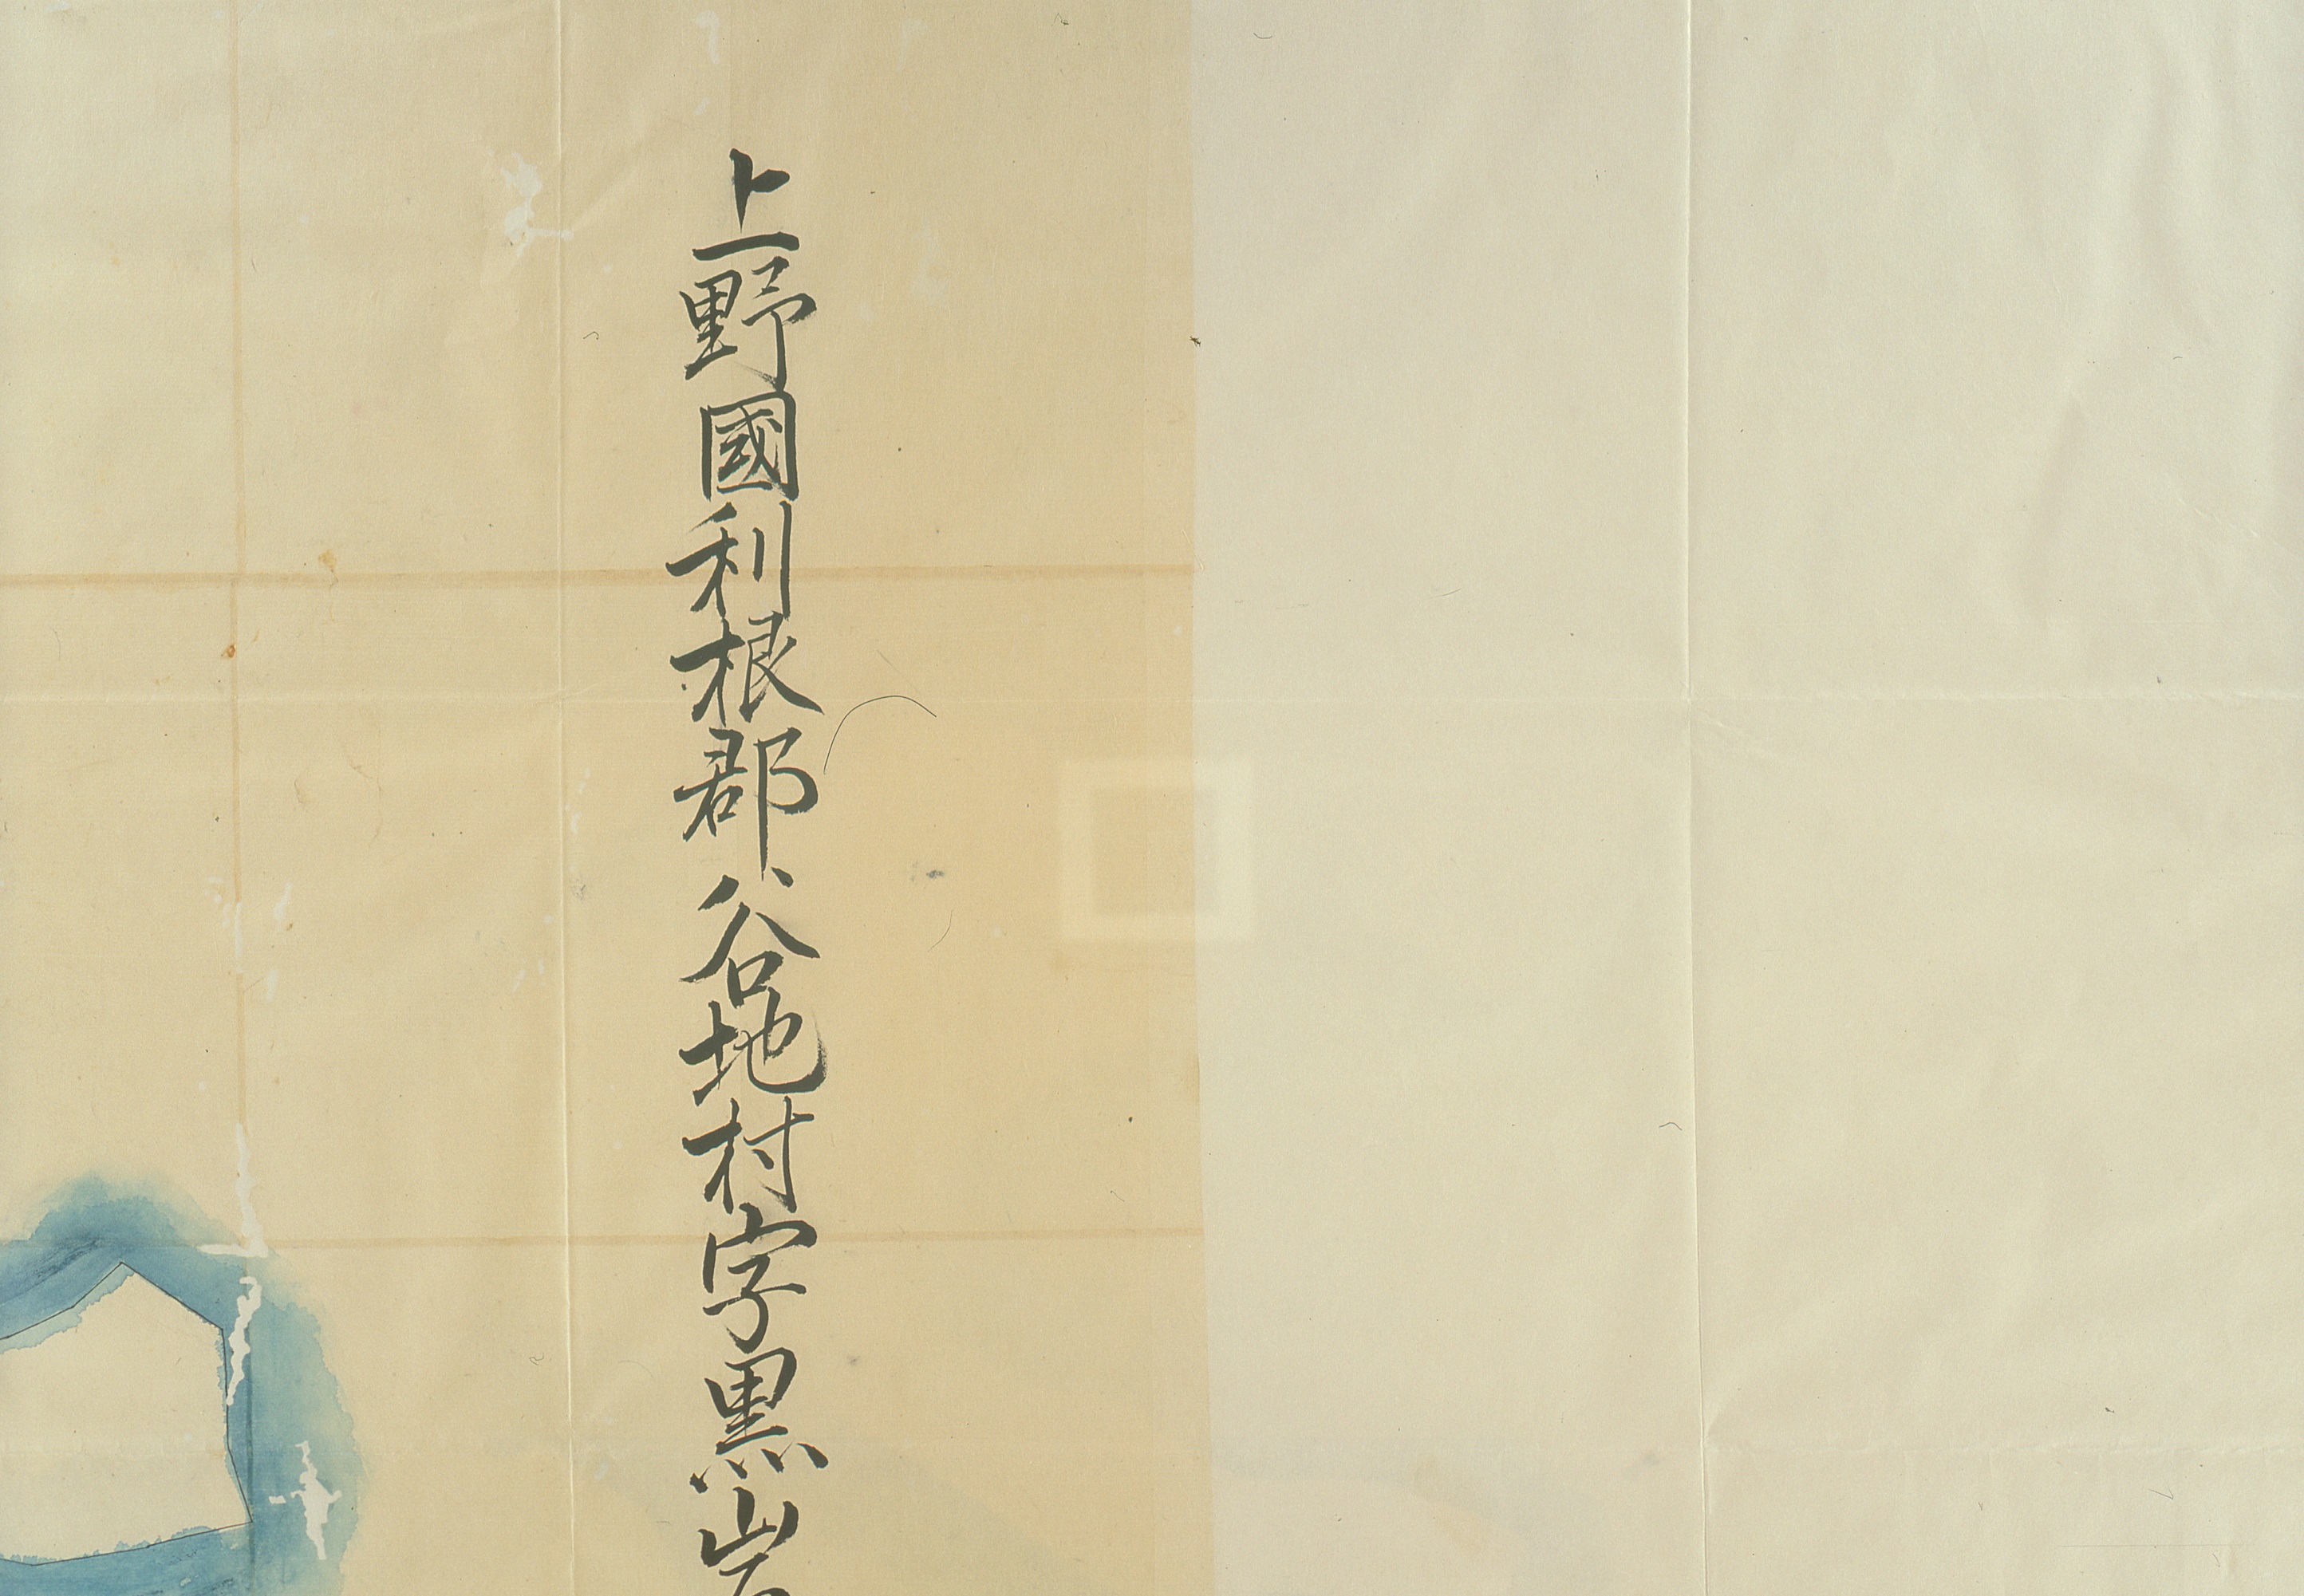 上野國利根郡谷地村字黒岩